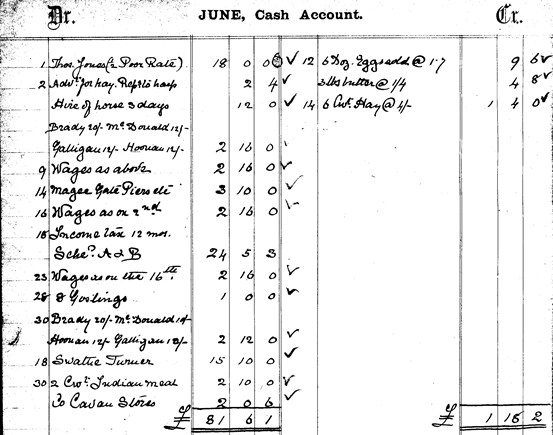 Dr. JUNE, Cash Account. Cr.
1 Thos. Jones (½ Poor Rate) 18 0 0 ✓ 12 6 Doz. Eggs sold @ 1-7 9 6 ✓
2 Advt. for hay. Rep'ls harp 2 4 ✓ 3 lbs butter @ 1/4 4 8 ✓
Hire of horse 3 days 12 0 ✓ 14 6 Cwt. Hay @ 4/- 1 4 0 ✓
Brady 20/- McDonald 12/-
Galligan 12/- Hoonan 12/- 2 16 0
9 Wages as above 2 16 0 ✓
14 Magee Gate Piers etc 3 10 0 ✓
16 Wages as on 2nd 2 16 0 ✓
18 Income tax 12 mos.
Sche. A & B 24 5 3
23 Wages as on the 16th. 2 16 0 ✓
28 8 Goslings 1 0 0 ✓
30 Brady 20/- McDonald
Hoonan 12/- Galligan 2 12 0 ✓
18 Swathe Turner 15 10 0 ✓
30 2 Cwt. Indian meal 2 10 0 ✓
Co Cavan Stores 2 0 6 ✓
£ 81 6 1 £ 1 18 2